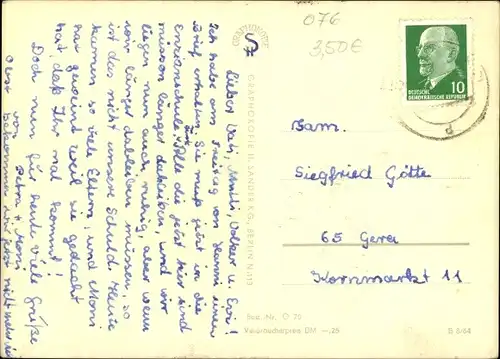 076
3,50€
Lieber Vati, Mutti, Volker u. Evi!
Ich habe am Freitag von Hanni einen
Brief erhalten. Sie muß jetzt in die
Alle die jetzt hier sind
müssen länger dableiben, und wir
liegen nun auch ruhig, aber wenn
wir länger dableiben müssen, so
ist das nicht unsere Schuld. Heute
kamen so viele Eltern, und Moni
hat geweint weil sie gedacht
hat, daß Ihr mal kommt!
Doch nun für heute viele Grüße
von Petra + Moni
bekommen wir jetzt nicht mehr
GRAPHOKOPIE
GRAPHOKOPIE H. SANDER KG., BERLIN N 113
DEUTSCHE
DEMOKRATISCHE REPUBLIK
10
Fam.
Siegfried Götte
65 Gera
Kornmarkt 11
Best.-Nr. O 75
Verbraucherpreis DM —,25
B 5/64